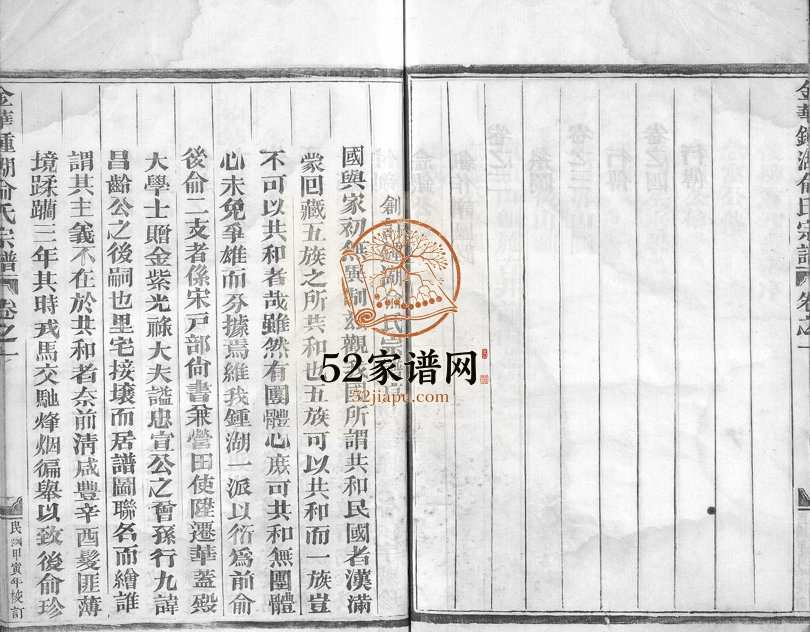 金華鍾湖俞氏宗譜
卷之一
創
國與家初無
觀
國所謂共和民國者漢滿
蒙回藏五族之所共和也五族可以共和而一族豈
不可以共和者哉雖然有團體心庶可共和無團體
心未免爭雄而分據焉維我鍾湖一派以衍爲前俞
後俞二支者係宋戸部尙書兼營田使陞遷華蓋殿
大學士贈金紫光祿大夫謚忠宣公之曾孫行九諱
昌齡公之後嗣也里宅接壤而居譜圖聯名而繪誰
謂其主義不在於共和者奈前淸咸豐辛酉髮匪薄
境蹂躪三年其時戎馬交馳烽烟徧舉以致後俞珍
金華鍾湖俞氏宗譜
卷之一
民國甲寅年校訂
52家谱网
52jiapu.com